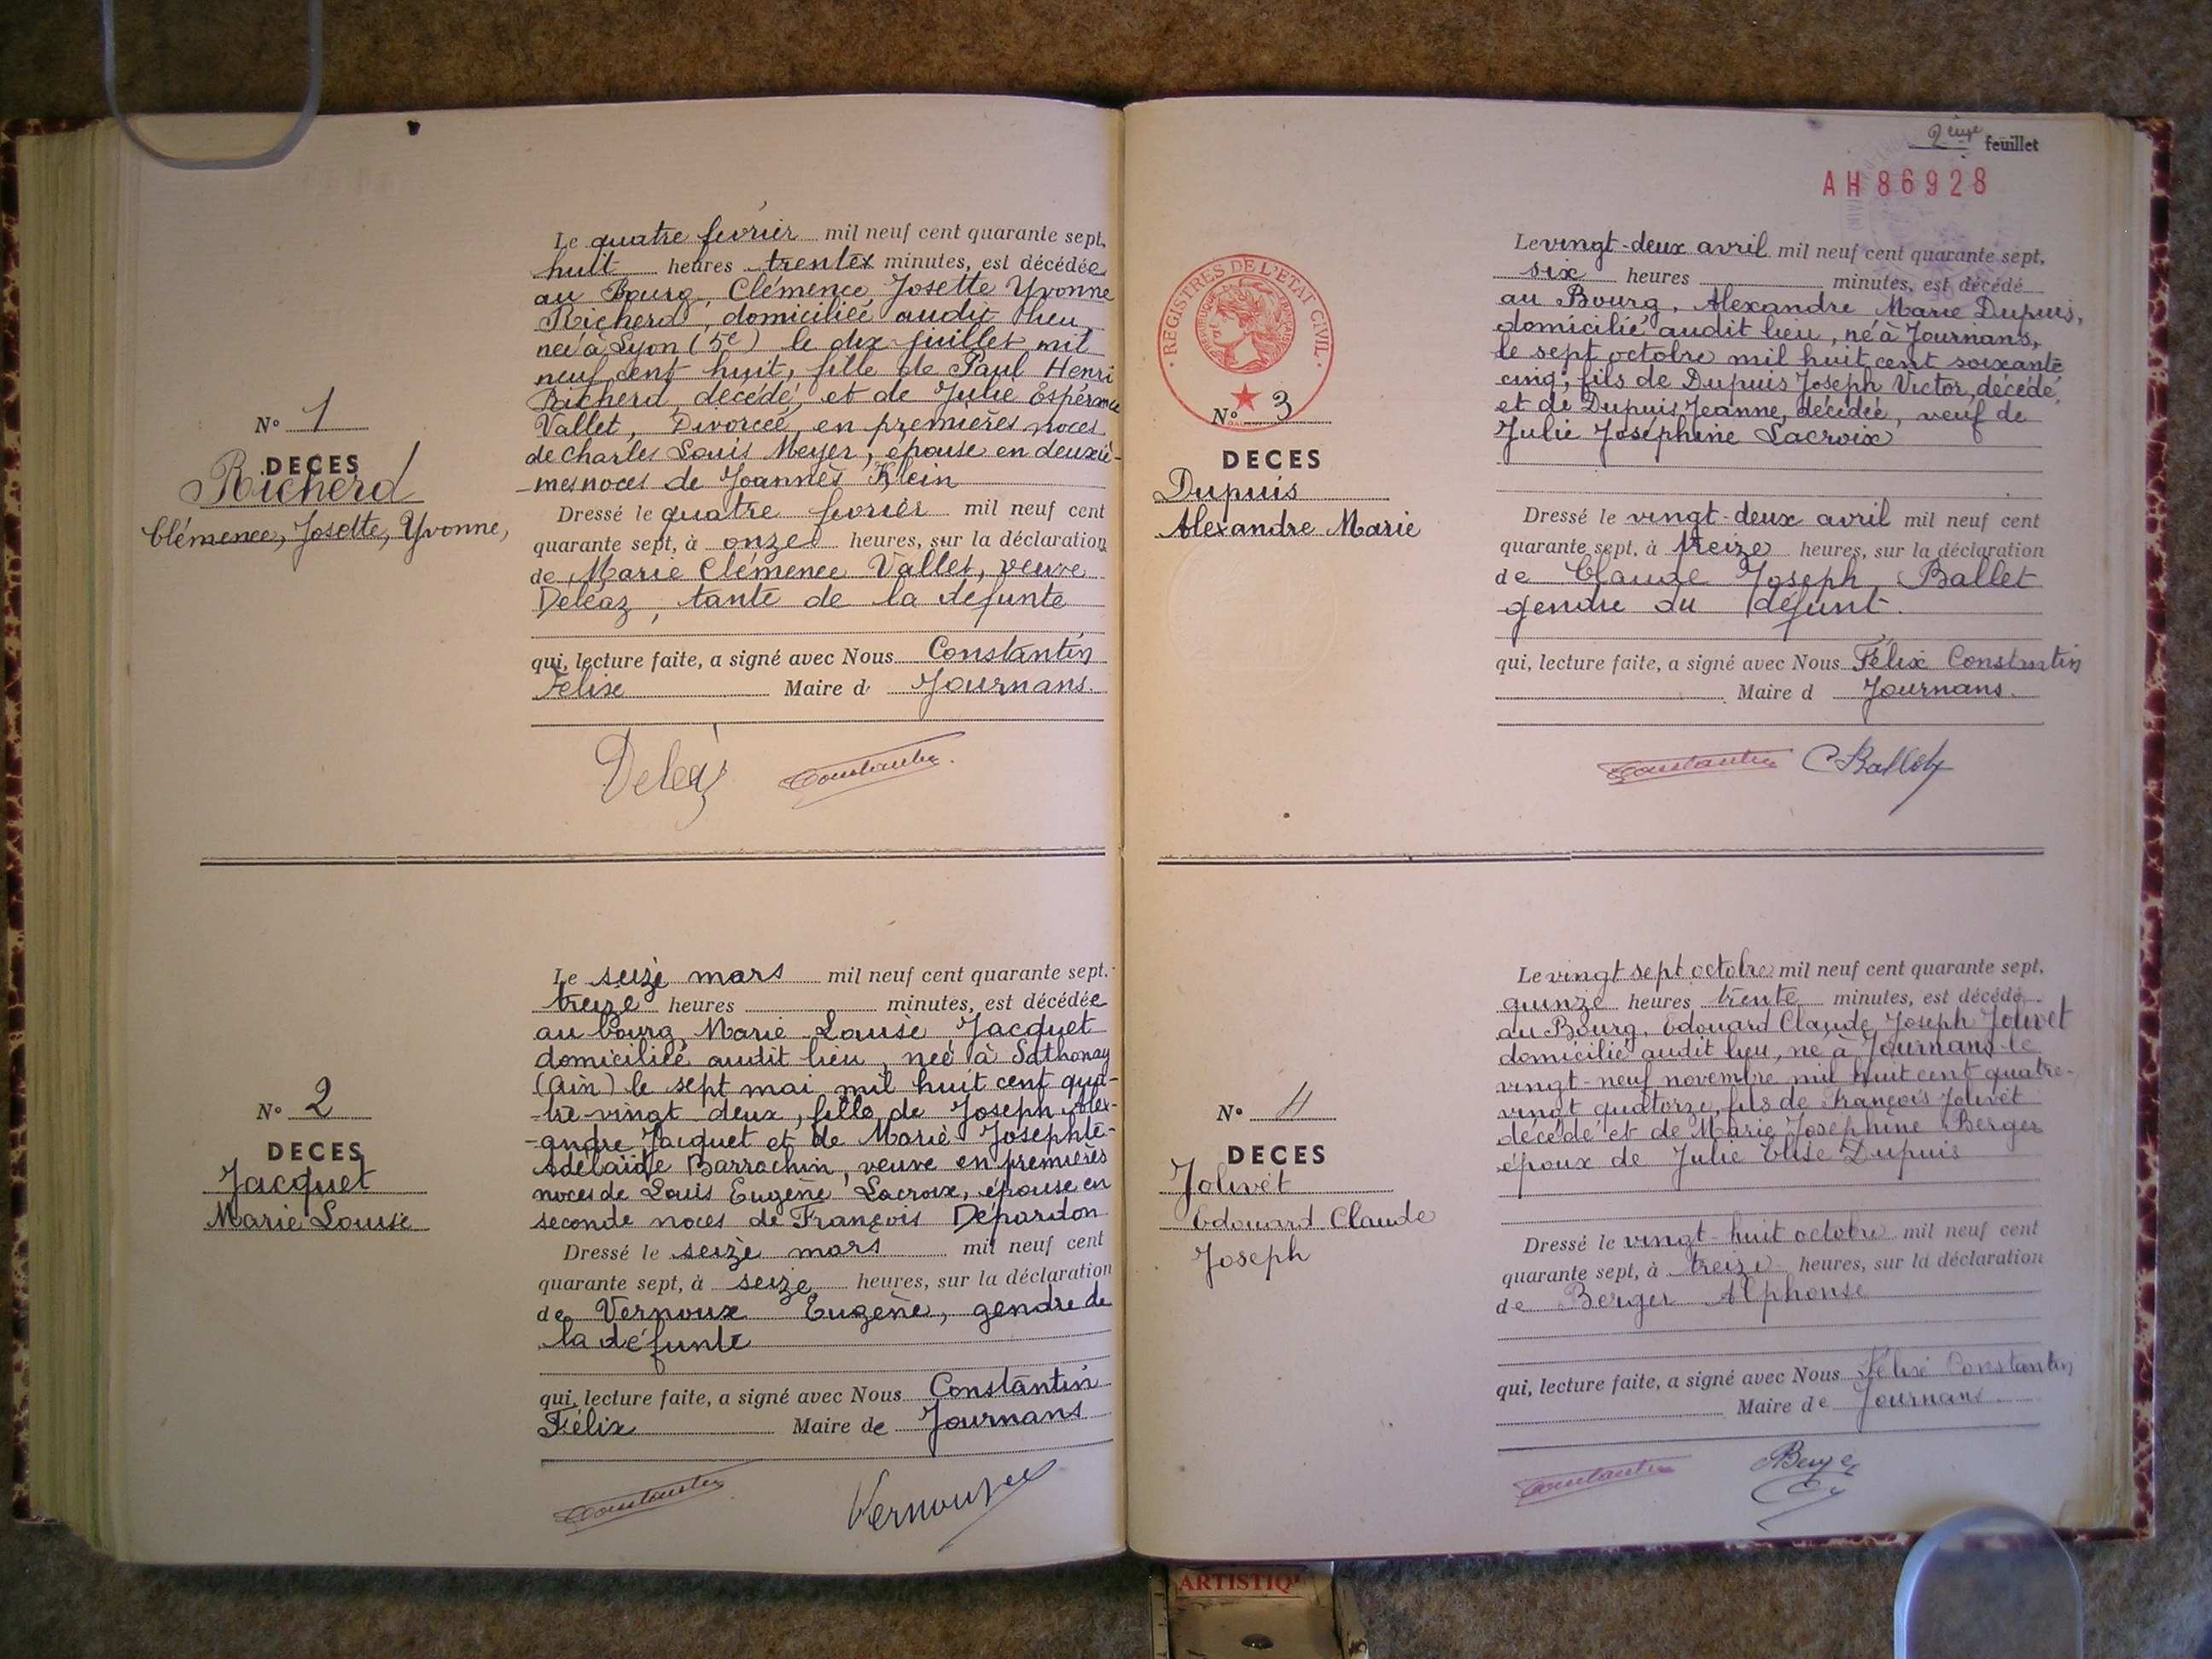 Le quatre fevrier mil neuf cent quarante sept,
huit heures trente minutes, est décédée
au Bourg, Clémence Josette Yvonne
Richerd, domiciliée audit lieu
née à Lyon (5e) le dix juillet mil
neuf cent huit, fille de Paul Henri
Richerd, décédé, et de Julie Espérance
Vallet, Divorcée en premières noces
de Charles Louis Meyer, épouse en deuxiè-
-mes noces de Joannès Klein
N° 1
DECES
Richerd
Clémence, Josette, Yvonne,
Dressé le quatre fevrier mil neuf cent
quarante sept, à onze heures, sur la déclaration
de Marie Clémence Vallet, veuve
Deléaz, tante de la defunte
qui, lecture faite, a signé avec Nous Constantin
Félix Maire d Journans.
Deléaz Constantin
Le seize mars mil neuf cent quarante sept,
treize heures minutes, est décédée
au bourg Marie Louise Jacquet
domiciliée audit lieu, née à Sathonay
(Ain) le sept mai mil huit cent qua-
-tre-vingt deux, fille de Joseph Alex-
-andre Jacquet et de Marie Josephte-
Adélaïde Barrachin, veuve en premières
noces de Louis Eugène Lacroix, épouse en
seconde noces de François Depardon
N° 2
DECES
Jacquet
Marie Louise
Dressé le seize mars mil neuf cent
quarante sept, à seize heures, sur la déclaration
de Vernoux Eugène, gendre de
la défunte
qui, lecture faite, a signé avec Nous Constantin
Félix Maire de Journans
Constantin Vernoux
2ème feuillet
AH 86928
REGISTRES DE L'ETAT CIVIL
Le vingt-deux avril mil neuf cent quarante sept,
six heures minutes, est décédé
au Bourg, Alexandre Marie Dupuis,
domicilié audit lieu, né à Journans,
le sept octobre mil huit cent soixante
cinq, fils de Dupuis Joseph Victor, décédé,
et de Dupuis Jeanne, décédée, veuf de
Julie Joséphine Lacroix
N° 3
DECES
Dupuis
Alexandre Marie
Dressé le vingt-deux avril mil neuf cent
quarante sept, à treize heures, sur la déclaration
de Claude Joseph Ballet
gendre du défunt.
qui, lecture faite, a signé avec Nous Félix Constantin
Maire d Journans.
Constantin C Ballet
Le vingt sept octobre mil neuf cent quarante sept,
quinze heures trente minutes, est décédé
au Bourg, Edouard Claude Joseph Jolivet
domicilié audit lieu, né à Journans le
vingt-neuf novembre mil huit cent quatre-
vingt quatorze, fils de François Jolivet
décédé et de Marie Josephine Berger
époux de Julie Elise Dupuis
N° 4
DECES
Jolivet
Edouard Claude
Joseph
Dressé le vingt-huit octobre mil neuf cent
quarante sept, à treize heures, sur la déclaration
de Berger Alphonse
qui, lecture faite, a signé avec Nous Félix Constantin
Maire de Journans.
Constantin Berger
ARTISTIQ